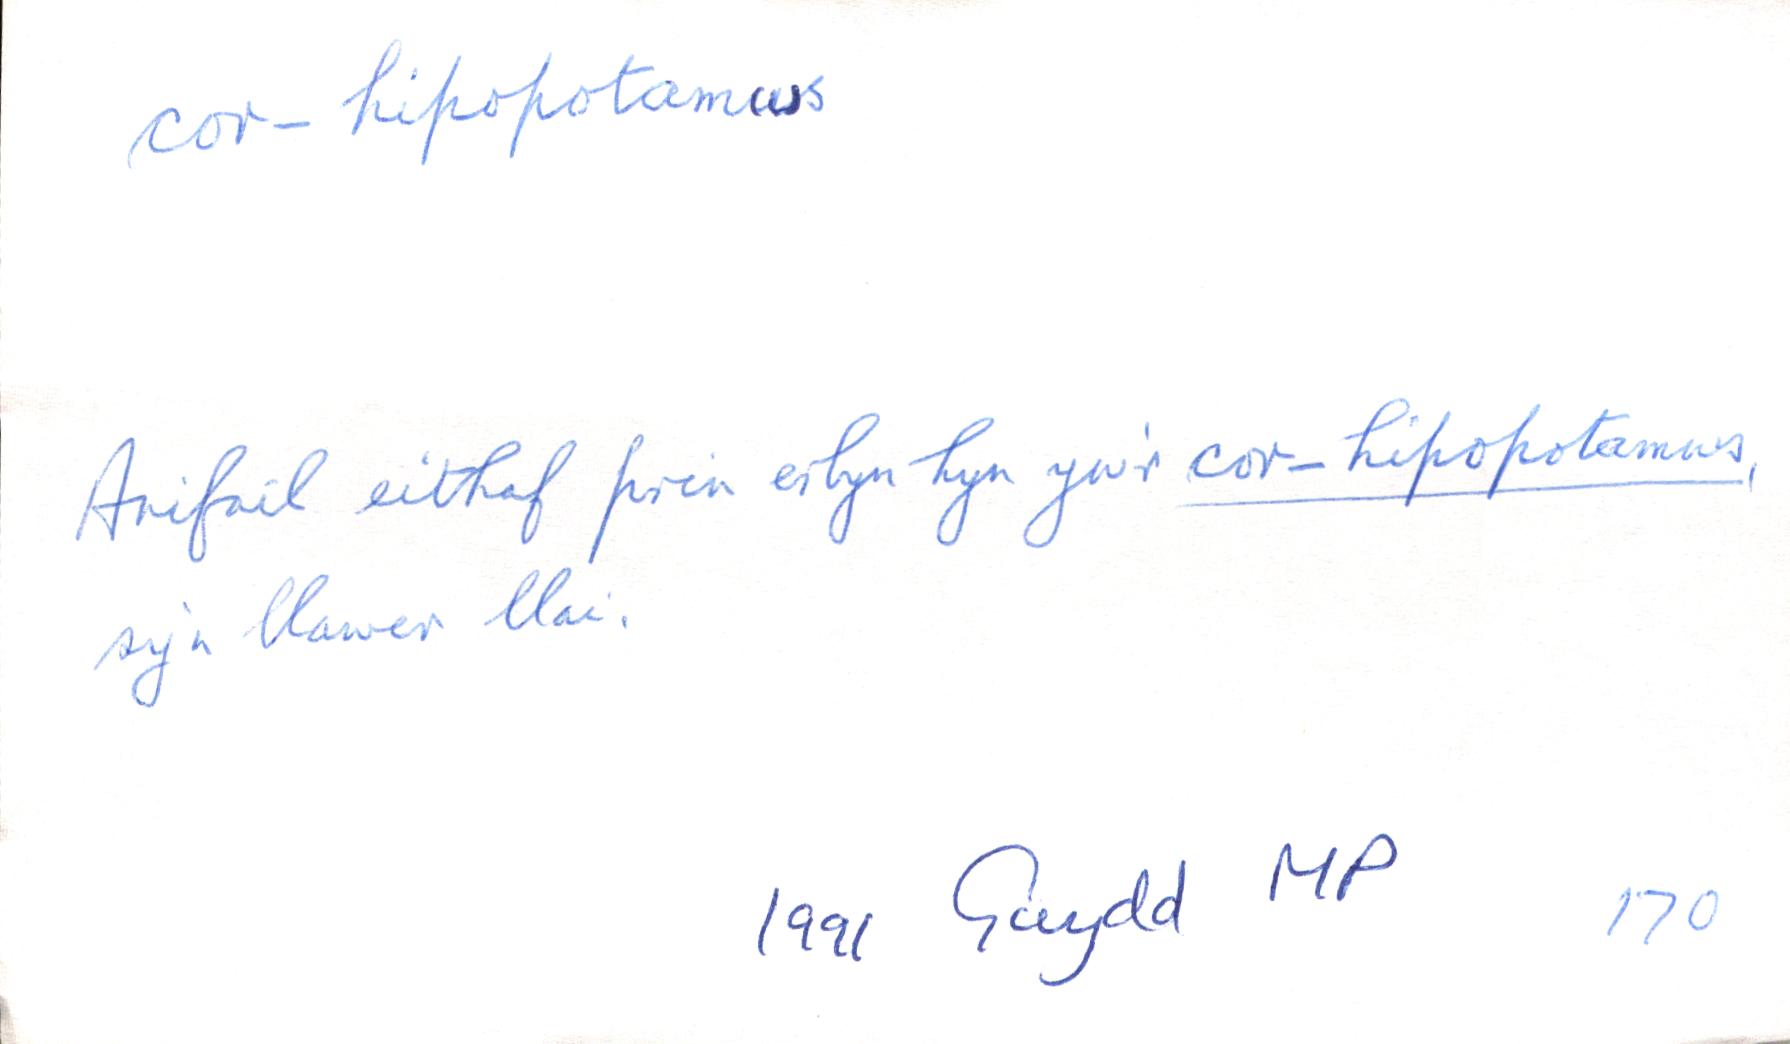 cor-hipopotamws
Anifail eithaf prin erbyn hyn yw'r cor-hipopotamws,
sy'n llawer llai.
1991 Gwydd MP 170